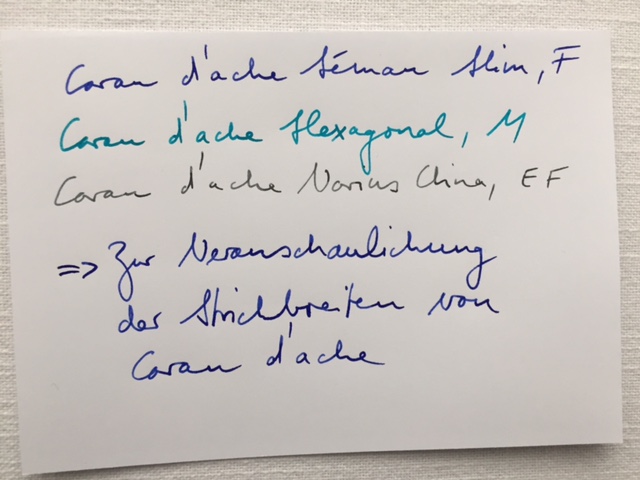 Caran d'ache Léman Slim, F
Caran d'ache Hexagonal, M
Caran d'ache Varius China, EF
=> Zur Veranschaulichung
der Strichbreiten von
Caran d'ache